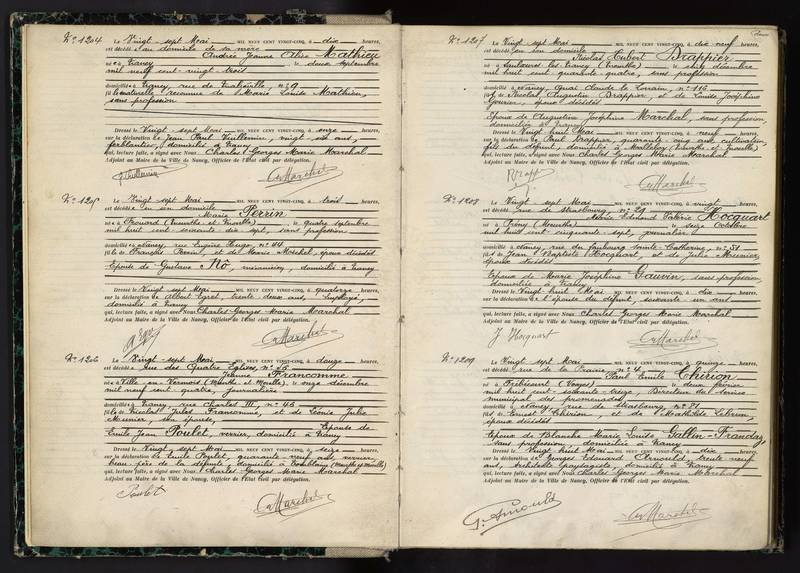 N° 1204 Le Vingt-sept Mai MIL NEUF CENT VINGT-CINQ, à dix heures,
est décédée au domicile de sa mère
Andrée Jeanne Alice Mathieu
née à Nancy le deux septembre
mil neuf cent vingt-trois
domiciliée à Nancy, rue de n° 9
fille naturelle reconnue de Marie Louise Mathieu,
sans profession
Dressé le Vingt-sept Mai MIL NEUF CENT VINGT-CINQ, à onze heures,
sur la déclaration de Jean Paul Vuillemin, vingt-six ans,
ferblantier, domicilié à Nancy
qui, lecture faite, a signé avec Nous: Charles Georges Marie Marchal
Adjoint au Maire de la Ville de Nancy, Officier de l'État civil par délégation.
N° 1205 Le Vingt-sept Mai MIL NEUF CENT VINGT-CINQ, à trois heures,
est décédée en son domicile
Marie Perrin
née à Frouard (Meurthe et Moselle) le quatre septembre
mil huit cent soixante dix sept, sans profession
domiciliée à Nancy, rue Eugène Hugo, n° 44
fille de François Perrin, et de Marie Michel, époux décédés
Epouse de Gustave Nô, menuisier, domicilié à Nancy
Dressé le Vingt-sept Mai MIL NEUF CENT VINGT-CINQ, à quatorze heures,
sur la déclaration de Albert Egret, trente deux ans, employé,
domicilié à Nancy
qui, lecture faite, a signé avec Nous: Charles Georges Marie Marchal
Adjoint au Maire de la Ville de Nancy, Officier de l'État civil par délégation.
N° 1206 Le Vingt-sept Mai MIL NEUF CENT VINGT-CINQ, à douze heures,
est décédée Rue des Quatre Eglises, n° 45
Jeanne Francomme
née à Ville-en-Vermois (Meurthe et Moselle) le onze décembre
mil neuf cent quatre, journalière
domiciliée à Nancy rue Charles III, n° 46
fille de Nicolas Jules Francomme, et de Léonie Julie
Meunier, son épouse,
Epouse de
Emile Jean Poulet, verrier, domicilié à Nancy
Dressé le Vingt-sept Mai MIL NEUF CENT VINGT-CINQ, à seize heures,
sur la déclaration de Emile Poulet, quarante neuf ans, verrier,
beau-père de la défunte, domicilié à Tomblaine (Meurthe et Moselle)
qui, lecture faite, a signé avec Nous: Charles Georges Marie Marchal
Adjoint au Maire de la Ville de Nancy, Officier de l'État civil par délégation.
Poulet
N° 1207 Le Vingt-sept Mai MIL NEUF CENT VINGT-CINQ, à dix neuf heures,
est décédé en son domicile
Nicolas Hubert Drappier
né à Saulxures les Nancy (Meurthe) le cinq décembre
mil huit cent quarante-quatre, sans profession
domicilié à Nancy, Quai Claude le Lorrain, n° 116
fils de Nicolas Augustin Drappier, et de Louise Joséphine
époux décédés
Epoux de Augustine Joséphine Marchal, sans profession,
domiciliée à Nancy
Dressé le Vingt huit Mai MIL NEUF CENT VINGT-CINQ, à neuf heures,
sur la déclaration de Paul Drappier, quarante-cinq ans, cultivateur,
fils du défunt, domicilié à Malleloy (Meurthe et Moselle)
qui, lecture faite, a signé avec Nous: Charles Georges Marie Marchal
Adjoint au Maire de la Ville de Nancy, Officier de l'État civil par délégation.
N° 1208 Le Vingt-sept Mai MIL NEUF CENT VINGT-CINQ, à vingt heures,
est décédé rue de Strasbourg, n° 29
Edmond Valérie Hocquart
né à (Meurthe) le seize Octobre
mil huit cent cinquante-sept, journalier
domicilié à Nancy, rue du faubourg Sainte-Catherine, n° 31
fils de Jean Baptiste Hocquart, et de Julie Meunier,
époux décédés
Epoux de Marie Joséphine Gauvin, sans profession,
domiciliée à Nancy
Dressé le Vingt-huit Mai MIL NEUF CENT VINGT-CINQ, à dix heures,
sur la déclaration de l'épouse du défunt, soixante un ans
qui, lecture faite, a signé avec Nous: Charles Georges Marie Marchal
Adjoint au Maire de la Ville de Nancy, Officier de l'État civil par délégation.
J Hocquart
N° 1209 Le Vingt-sept Mai MIL NEUF CENT VINGT-CINQ, à quinze heures,
est décédé rue de la Prairie, n° 4
Paul Emile Chirion
né à (Vosges) le deux février
mil huit cent soixante treize, Directeur du Service
municipal des promenades,
domicilié à Nancy, rue de Strasbourg, n° 71
fils de Ernest Chirion, et de Mathilde Lebrun,
époux décédés
Epoux de Blanche Marie Louise Gallin-Francloz,
sans profession, domiciliée à Nancy
Dressé le Vingt huit Mai MIL NEUF CENT VINGT-CINQ, à dix heures,
sur la déclaration de Georges Edouard Arnould, trente neuf
ans, Architecte paysagiste, domicilié à Nancy
qui, lecture faite, a signé avec Nous: Charles Georges Marie Marchal
Adjoint au Maire de la Ville de Nancy, Officier de l'État civil par délégation.
G. Arnould